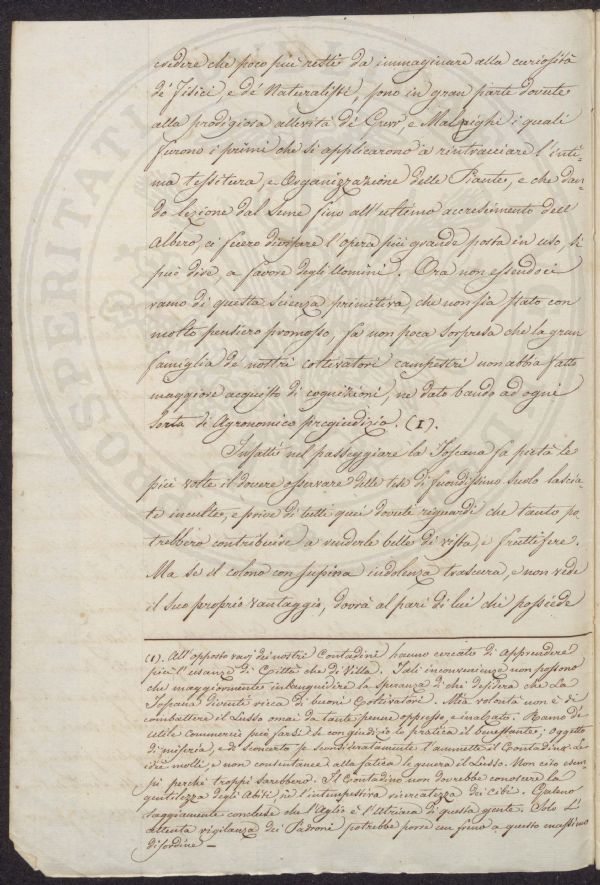 credere che poco più resti da immaginare alla curiosità
de' Fisici, e de' Naturalisti, sono in gran parte dovute
alla prodigiosa attività de' Grew, e Malpighi i quali
furono i primi che si applicarono a rintracciare l'inti-
ma tessitura, e Organizzazione delle Piante, e che dan-
do lezione dal Seme fino all'ultimo accrescimento dell'
Albero, ci fecero divisare l'opera più grande posta in uso, si
può dire a favore degli Uomini. Ora non essendoci
ramo di questa scienza primitiva, che non sia stato con
molto pensiero promosso, fa non poca sorpresa che la gran
famiglia de' nostri coltivatori campestri non abbia fatto
maggiore acquisto di cognizioni, ne dato bando ad ogni
sorta di Agronomico pregiudizio. (1).
Infatti nel passeggiare la Toscana fa pietà le
più volte il dovere osservare delle tese di fecondissimo suolo lascia-
te inculte, e prive di tutti quei dovuti riguardi che tanto po-
trebbero contribuire a renderle belle di vista, e fruttifere.
Ma se il colono con supina indolenza trascura, e non vede
il suo proprio vantaggio, dovrà al pari di lui chi possiede
(1). All'opposto varj dei nostri Contadini hanno cercato di apprendere
più l'usanze di Città che di Villa. Tali inconvenienze non possono
che maggiormente illanguidire la speranza di chi desidera che la
Toscana divenga ricca di buoni Coltivatori. Mia volontà non è di
combattere il Lusso omai da tante penne oppresso, e inalzato. Ramo di
utile Commercio può farsi se con giudizio lo pratica il benestante; Oggetto
di miseria, e di sconcerto se sconsideratamente l'ammette il Contadino. Le
idee molli, e non consentanee alla fatica le genera il Lusso. Non cito esem-
pi perchè troppi sarebbero. Il Contadino non dovrebbe conoscere la
gentilezza degli Abiti, nè l'intempestiva ricercatezza dei Cibi. Galeno
saggiamente conclude che l'Aglio è l'Utriaca di questa gente. Solo l'
attenta vigilanza dei Padroni potrebbe porre un freno a questo massimo
disordine —
PROSPERITATI